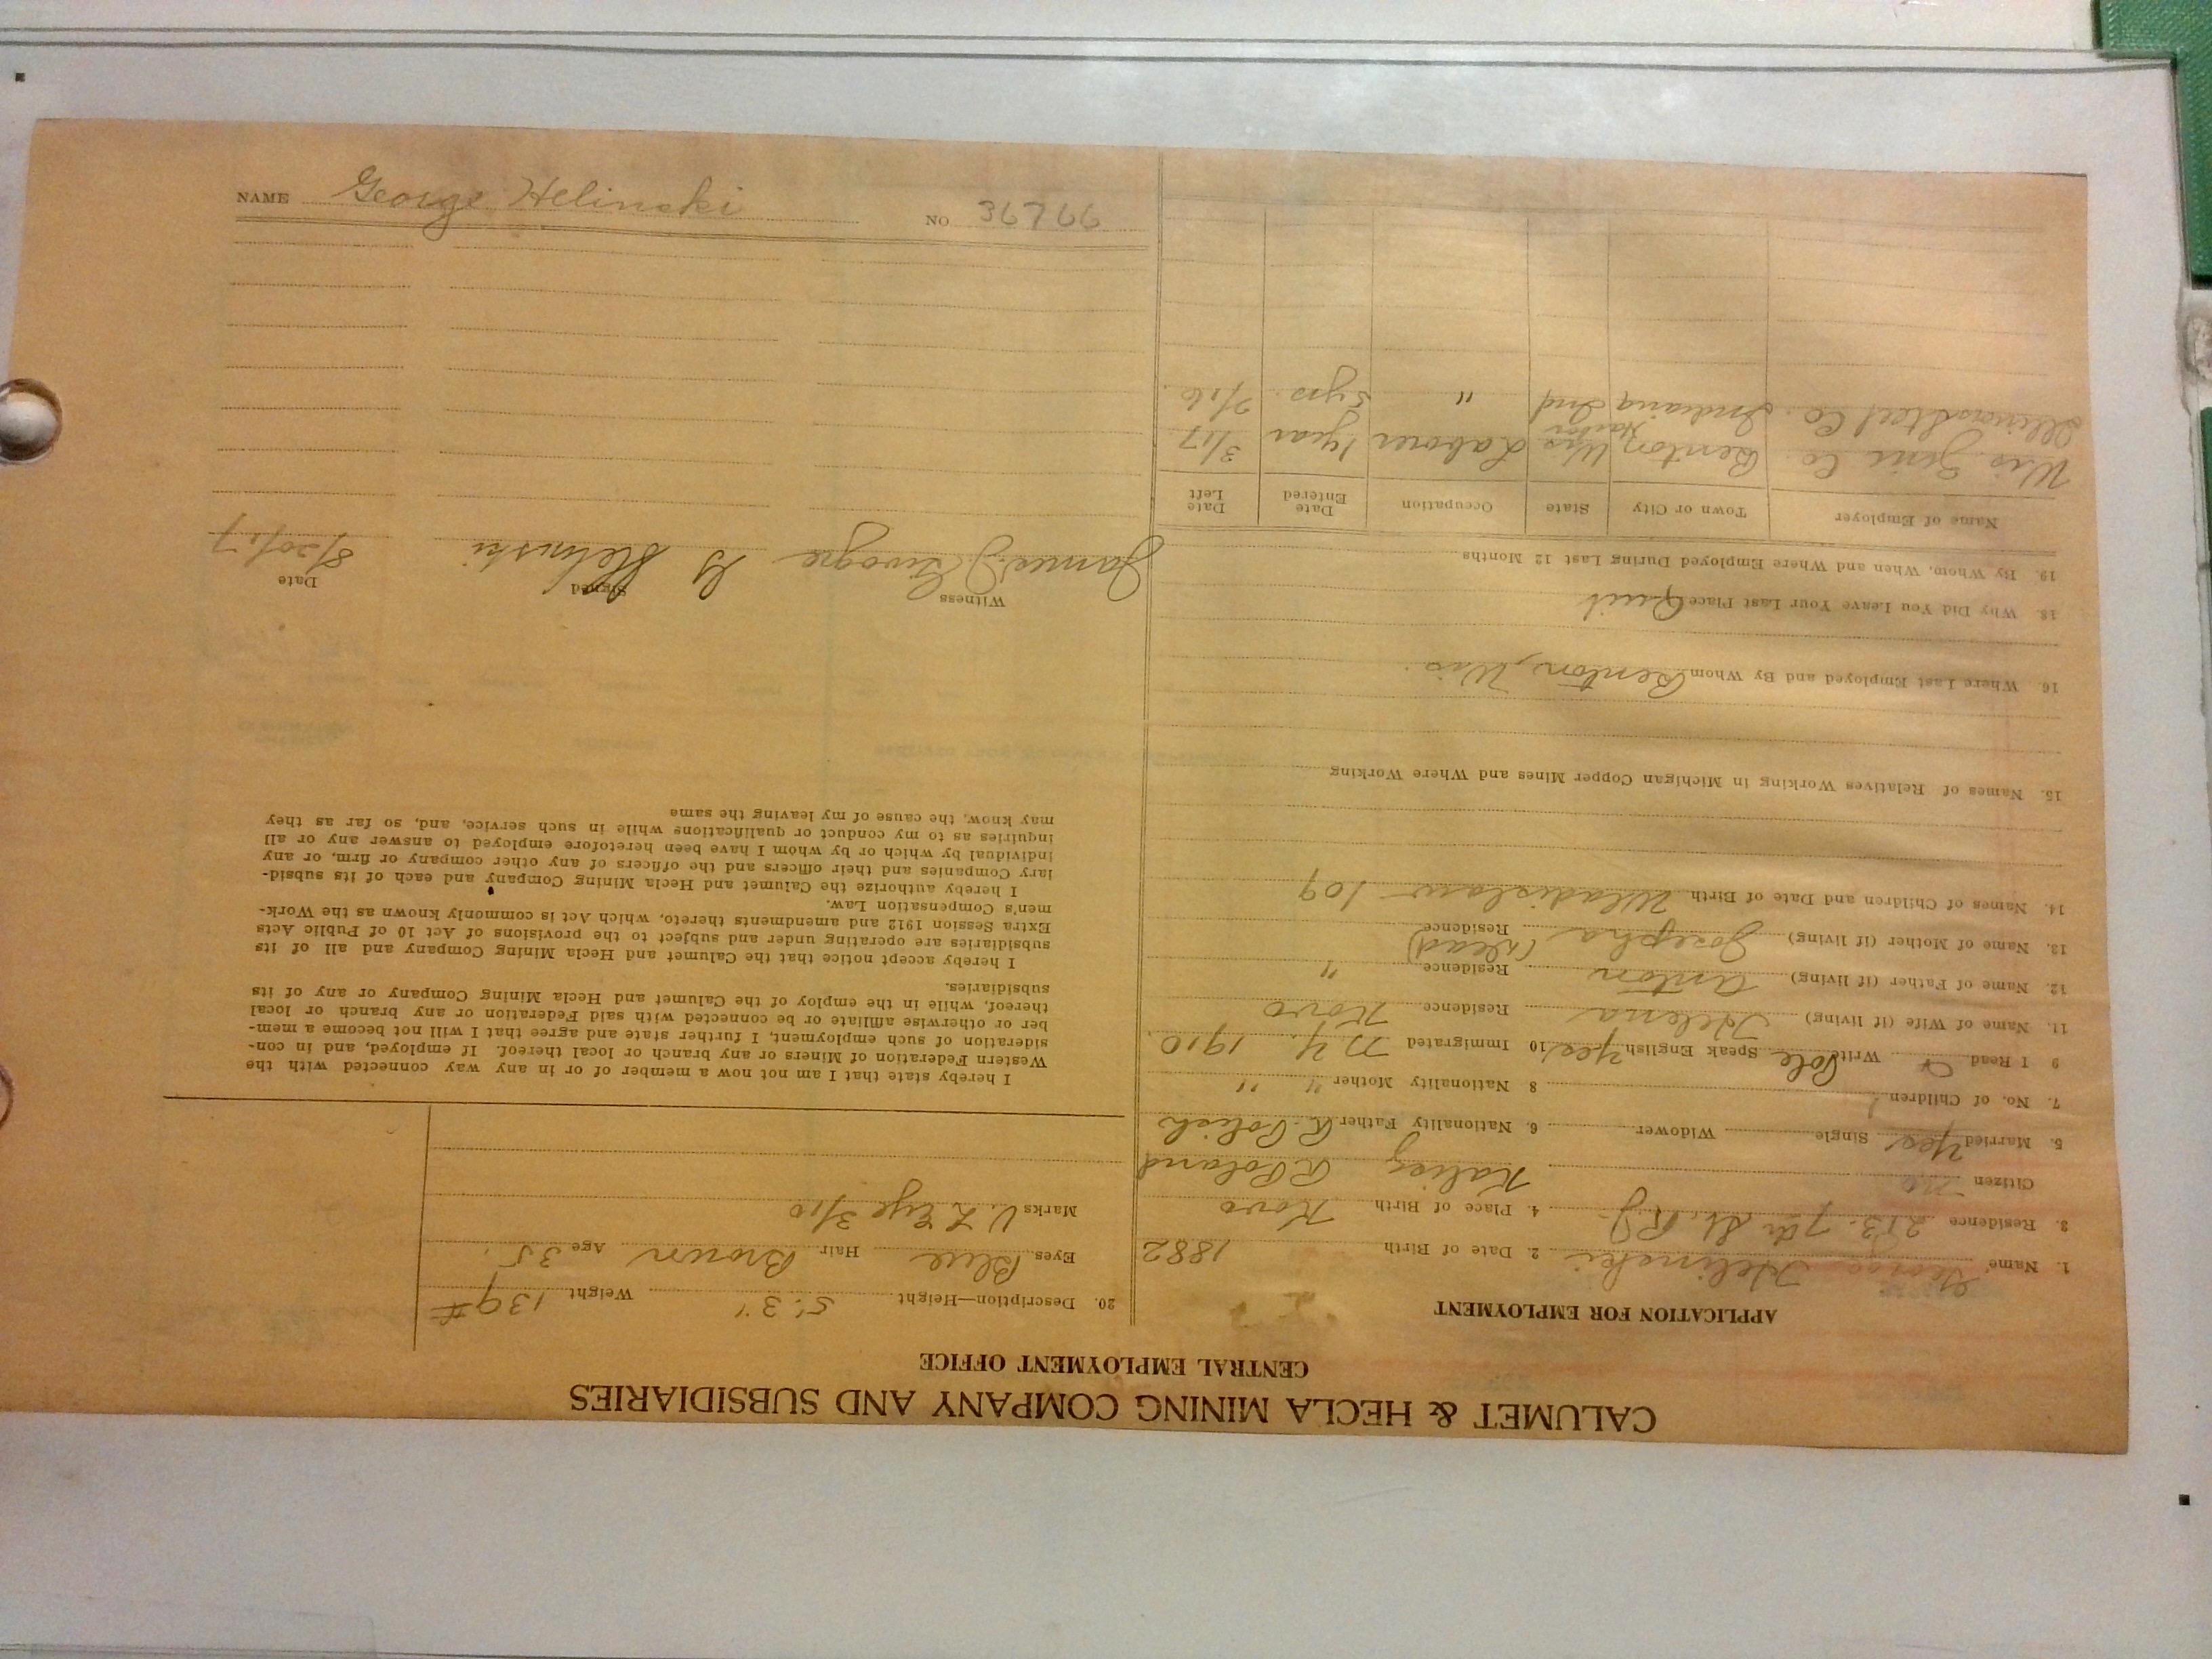 CALUMET & HECLA MINING COMPANY AND SUBSIDIARIES
CENTRAL EMPLOYMENT OFFICE
APPLICATION FOR EMPLOYMENT
1. Name George Helinski 2. Date of Birth 1882
3. Residence 213. 7th St. R.J. 4. Place of Birth Kovo
Citizen no Kalisz R. Poland
5. Married Yes Single Widower 6. Nationality Father R. Polish
7. No. of Children 1 8 Nationality Mother " "
9 I Read + Write Pole Speak English Yes 10 Immigrated N.Y. 1910
11. Name of Wife (if living) Helena Residence Kovo
12. Name of Father (if living) Anton Residence "
13. Name of Mother (if living) Josepha (dead) Residence
14. Names of Children and Date of Birth Wladislaw 109
15. Names of Relatives Working in Michigan Copper Mines and Where Working
16. Where Last Employed and By Whom Benton, Wis.
18. Why Did You Leave Your Last Place Quit
19. By Whom, When and Where Employed During Last 12 Months
Name of Employer Town or City State Occupation Date Entered Date Left
Wis Zinc Co. Benton Wis Laborer 1 year 3/17
Illinois Steel Co. Indiana Harbor Ind " 5 yrs. 2/16
20. Description—Height 5' 3" Weight 139#
Eyes Blue Hair Brown Age 35.
Marks V. L Eye 3/10
I hereby state that I am not now a member of or in any way connected with the
Western Federation of Miners or any branch or local thereof. If employed, and in con-
sideration of such employment, I further state and agree that I will not become a mem-
ber or otherwise affiliate or be connected with said Federation or any branch or local
thereof, while in the employ of the Calumet and Hecla Mining Company or any of its
subsidiaries.
I hereby accept notice that the Calumet and Hecla Mining Company and all of its
subsidiaries are operating under and subject to the provisions of Act 10 of Public Acts
Extra Session 1912 and amendments thereto, which Act is commonly known as the Work-
men's Compensation Law.
I hereby authorize the Calumet and Hecla Mining Company and each of its subsid-
iary Companies and their officers and the officers of any other company or firm, or any
individual by which or by whom I have been heretofore employed to answer any or all
inquiries as to my conduct or qualifications while in such service, and, so far as they
may know, the cause of my leaving the same
Witness Signed Date
James J G Helinski 8/20/17
NAME George Helinski NO 36766